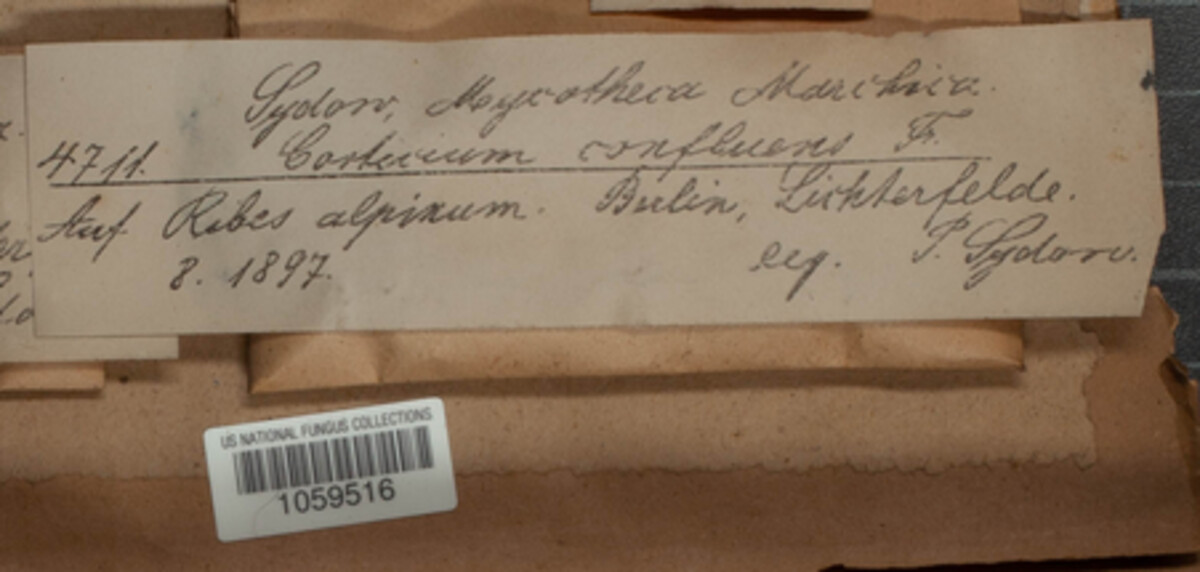 Sydow, Mycotheca Marchica.
4711. Corticium confluens Fr.
Auf Ribes alpinum. Berlin, Lichterfelde.
8. 1897. leg. P. Sydow.
US NATIONAL FUNGUS COLLECTIONS
1059516